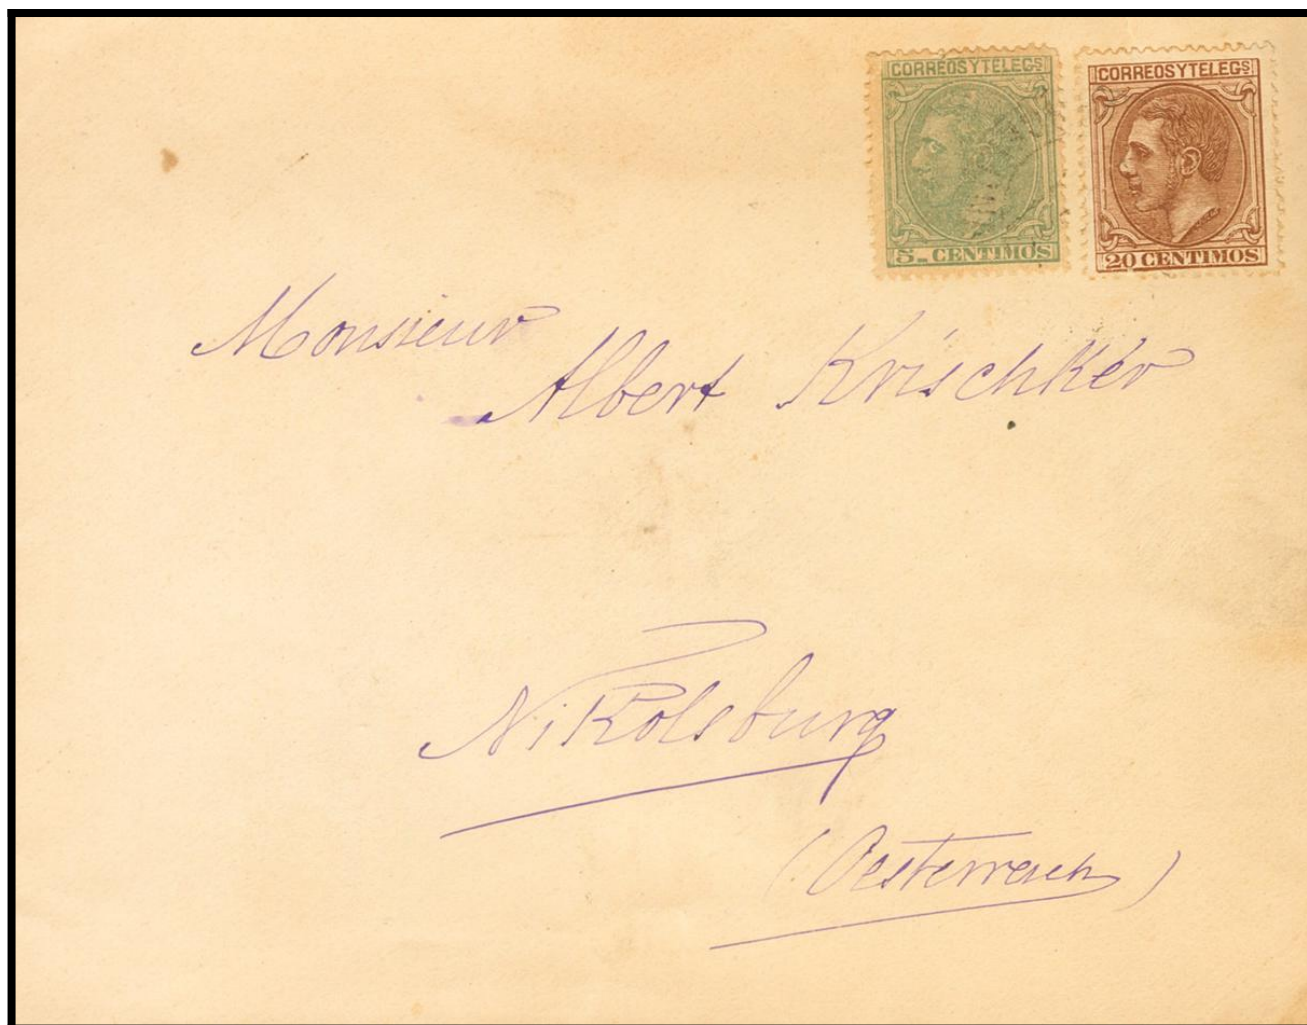 CORREOS Y TELEGS
5 CENTIMOS
CORREOS Y TELEGS
20 CENTIMOS
Monsieur
Albert Krischker
Nikolsburg
(Oesterreich)